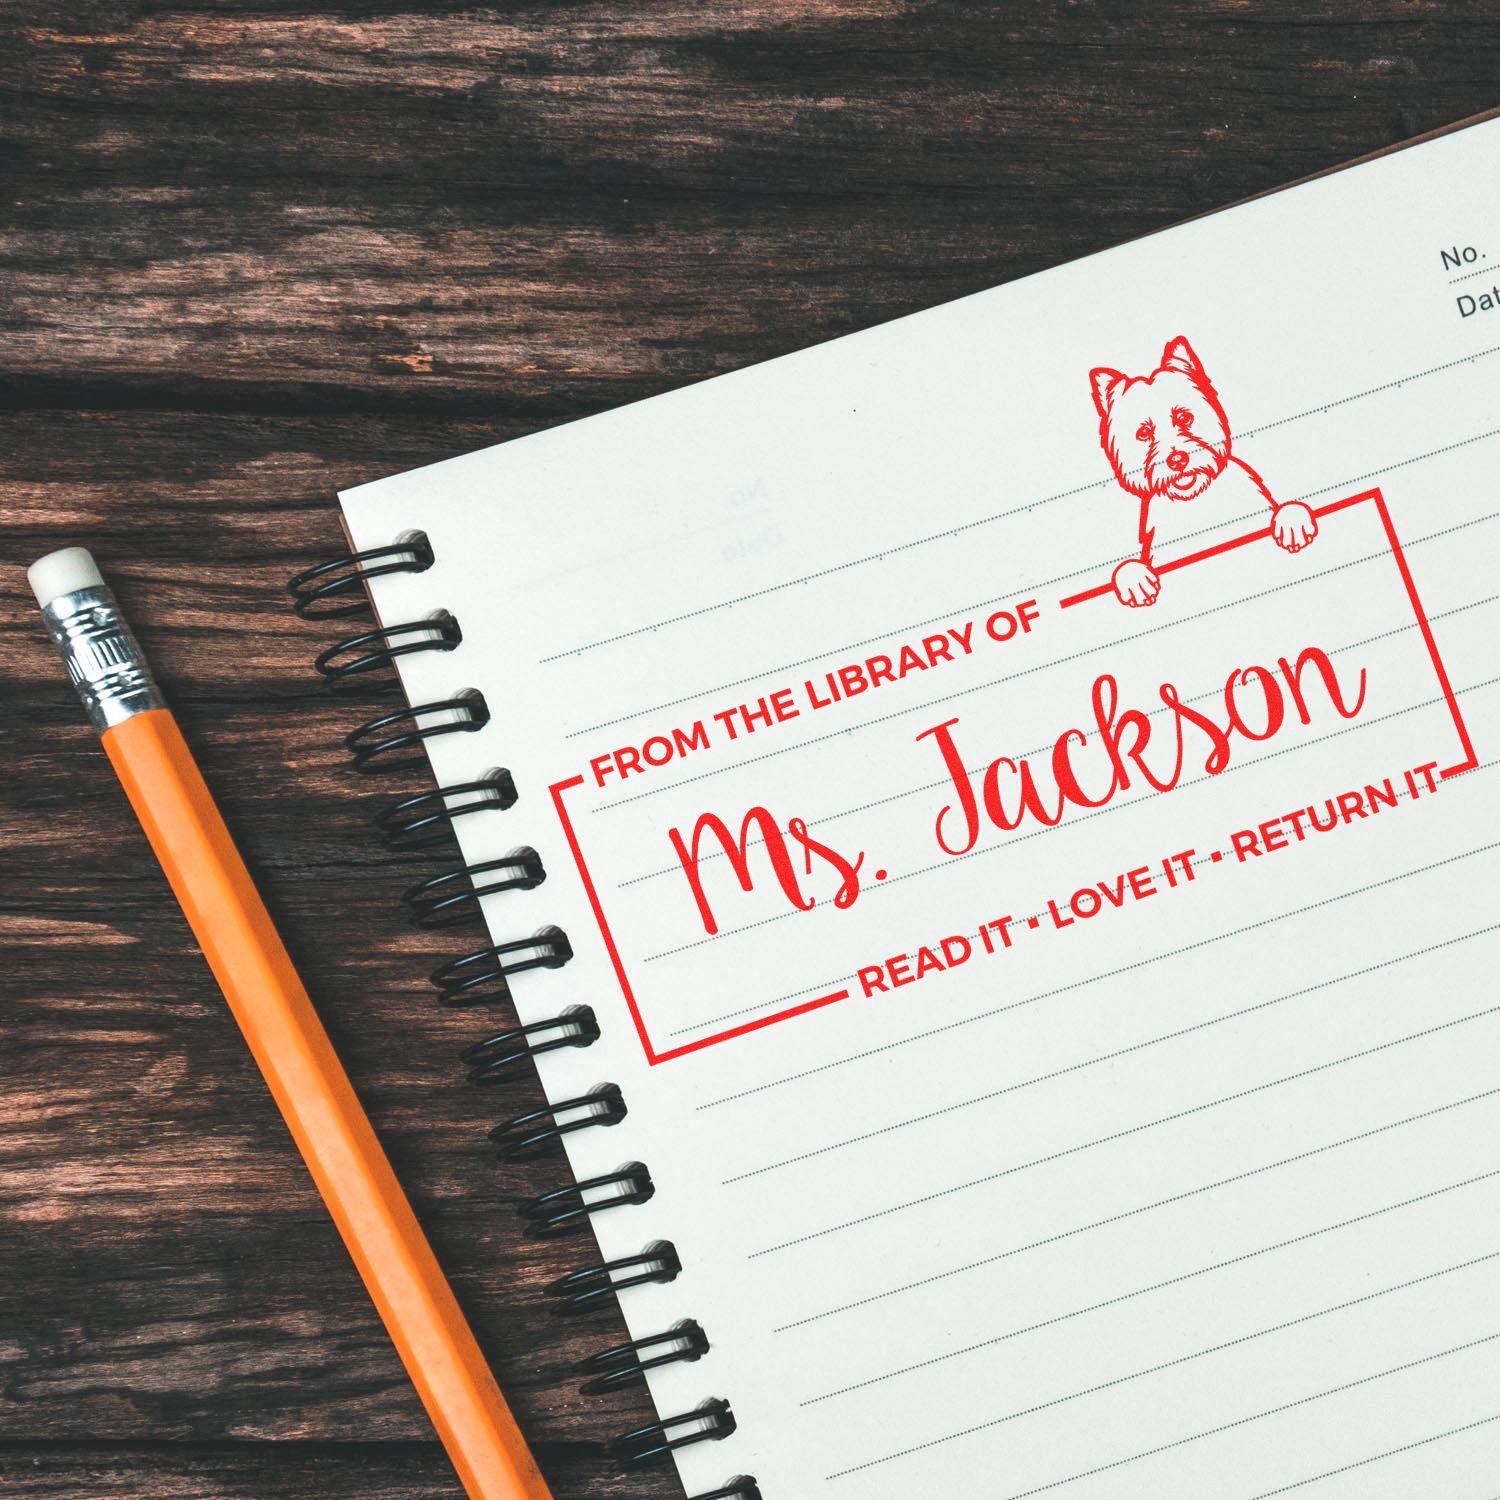 No.
FROM THE LIBRARY OF
Ms. Jackson
READ IT • LOVE IT • RETURN IT